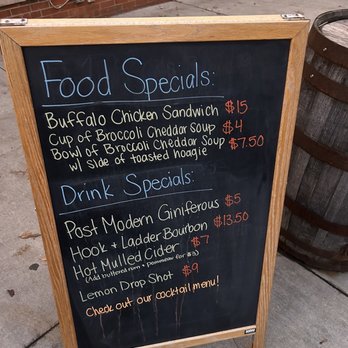 Food Specials:
Buffalo Chicken Sandwich $15
Cup of Broccoli Cheddar Soup $4
Bowl of Broccoli Cheddar Soup $7.50
w/ side of toasted hoagie
Drink Specials:
Post Modern Giniferous $5
Hook + Ladder Bourbon $13.50
Hot Mulled Cider $7
(Add buttered rum + for $
Lemon Drop Shot $9
Check out our cocktail menu!